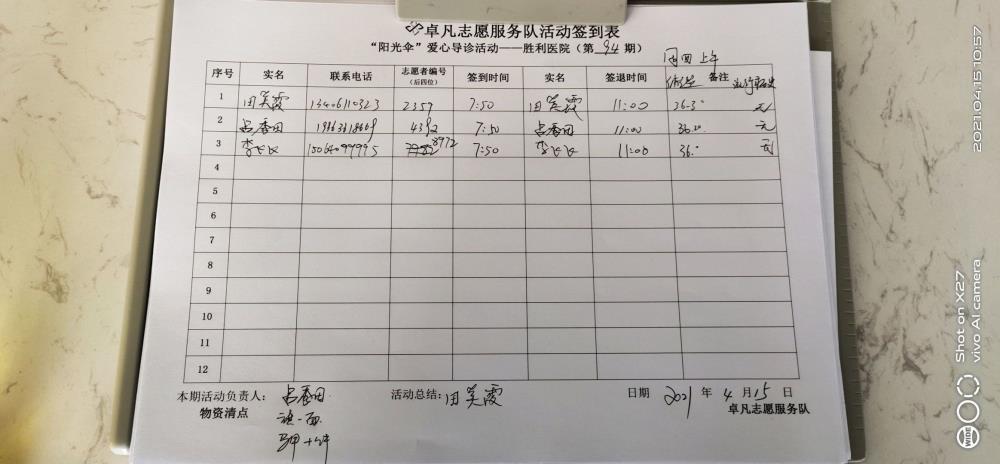 卓凡志愿服务队活动签到表
“阳光伞”爱心导诊活动——胜利医院（第 94 期）
周四 上午
序号 实名 联系电话 志愿者编号（后四位） 签到时间 实名 签退时间 体温 备注
1 田美霞 13406110323 2357 7:50 田美霞 11:00 36.3° 无
2 吕香田 7:50 吕香田 11:00 无
3 李 8972 7:50 李 11:00 36.° 无
4
5
6
7
8
9
10
11
12
本期活动负责人： 吕香田 活动总结： 田美霞 日期 2021 年 4 月 15 日
物资清点 旗一面 卓凡志愿服务队
马甲十件
2021.04.15 10:57
Shot on X27
vivo AI camera